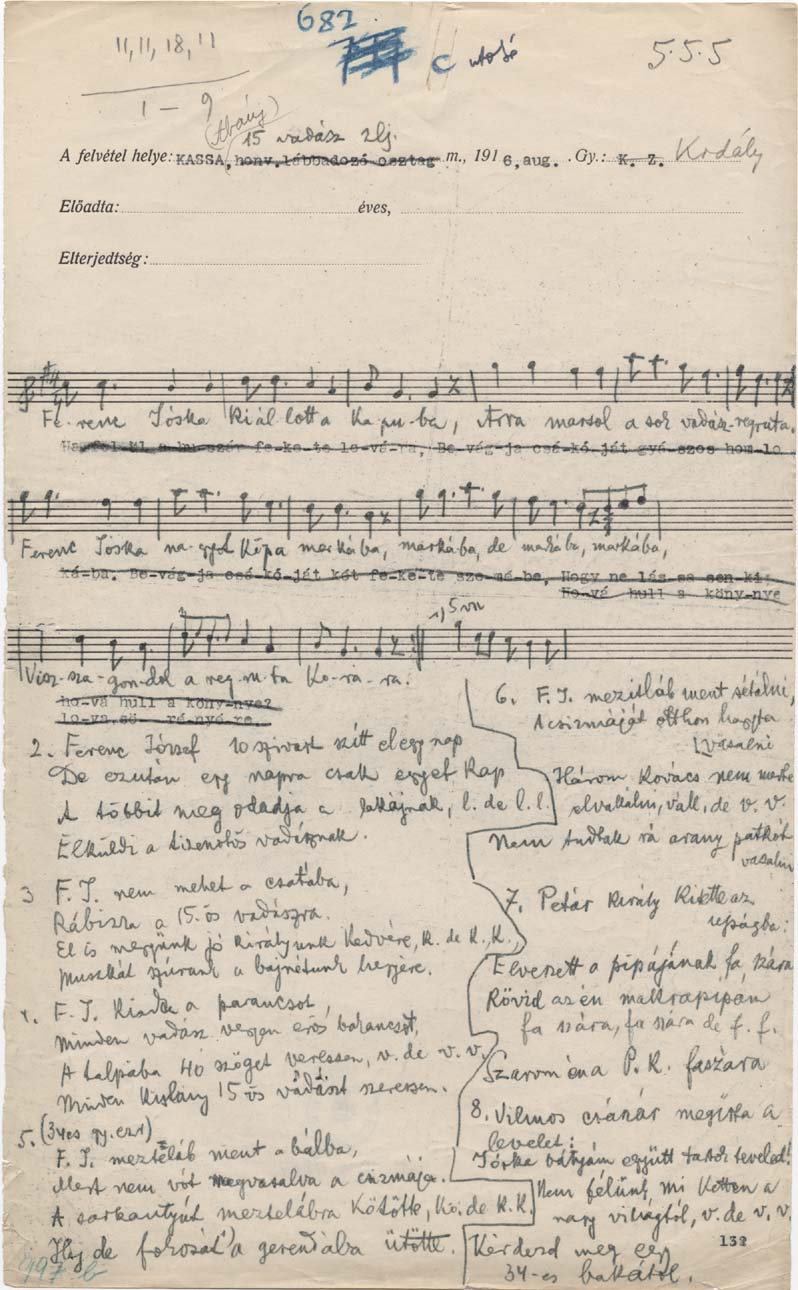 682
11, 11, 18, 11
c utolsó
5.5.5
1 – 9
(Abaúj)
15 vadász zlj.
A felvétel helye: KASSA, honv. lábbadozó osztag m., 1916, aug. Gy.: K. Z. Kodály
Előadta: éves,
Elterjedtség:
Fe-renc Jóska kiál-lott a ka-pu-ba, Arra marsol a sok vadász-regruta.
Ha fel-ül a hu-szár fe-ke-te lo-vá-ra, Be-vág-ja csá-kó-ját gyá-szos hom-lo
Ferenc Jóska na-gyot köpa markába, marká-ba, de markába, markába,
ká-ba. Be-vág-ja csá-kó-ját két fe-ke-te sze-mé-be, Hogy ne lás-sa sen-ki,
Ho-vá hull a köny-nye
1) 5 vn
Visz-sza-gon-dol a reg-ru-ta ko-rá-ra.
ho-vá hull a köny-nye?
lo-va, sö- ré-nyé-re.
2. Ferenc József 10 szivart szítt el egy nap
De ezután egy napra csak egyet kap
A többit meg odadja a lakájnak, l. de l. l.
Elküldi a tizenötös vadásznak.
3 F. J. nem mehet a csatába,
Rábizza a 15-ös vadászra.
El is megyünk jó királyunk kedvére, k. de k., k.,
Muszkát szúrunk a bajnétunk hegyére.
4. F. J. kiadta a parancsot,
Minden vadász vegyen erős bakancsot,
A talpába 40 szöget veressen, v. de v. v.
Minden kislány 15-ös vadászt szeressen.
5. (34es gy. ezr.)
F. J. meztéláb ment a bálba,
Mert nem vót megvasalva a csizmája.
A sarkantyút meztelábra kötötte, kö. de k. k.
Haj de fokosát a gerendába ütötte.
6. F. J. mezitláb ment sétálni,
A csizmáját otthon hagyta
vasalni
Három kovács nem merte
elvállalni, váll, de v. v.
Nem tudtak rá arany patkót
vasalni
7. Petár király kitette az
ujságba:
Elveszett a pipájának fa szára
Rövid az én makrapipám
fa szára, fa szára de f. f.
Szarom én a P. k. faszára
8. Vilmos császár megírta a
levelet:
Jóska bátyám együtt tartok teveled!
Nem félünk mi ketten a
nagy világtól, v. de v. v.
Kérdezd meg egy
34-es bakától.
132
497 b